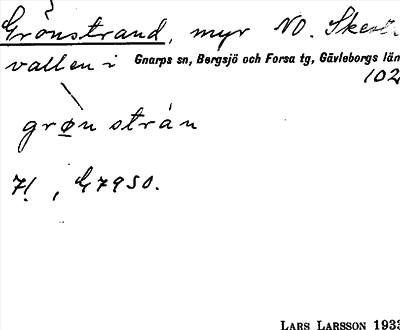 Grönstrand, myr NO. Skest
vallen i Gnarps sn, Bergsjö och Forsa tg, Gävleborgs län
102
grøn strån
7!, G7950.
LARS LARSSON 1933